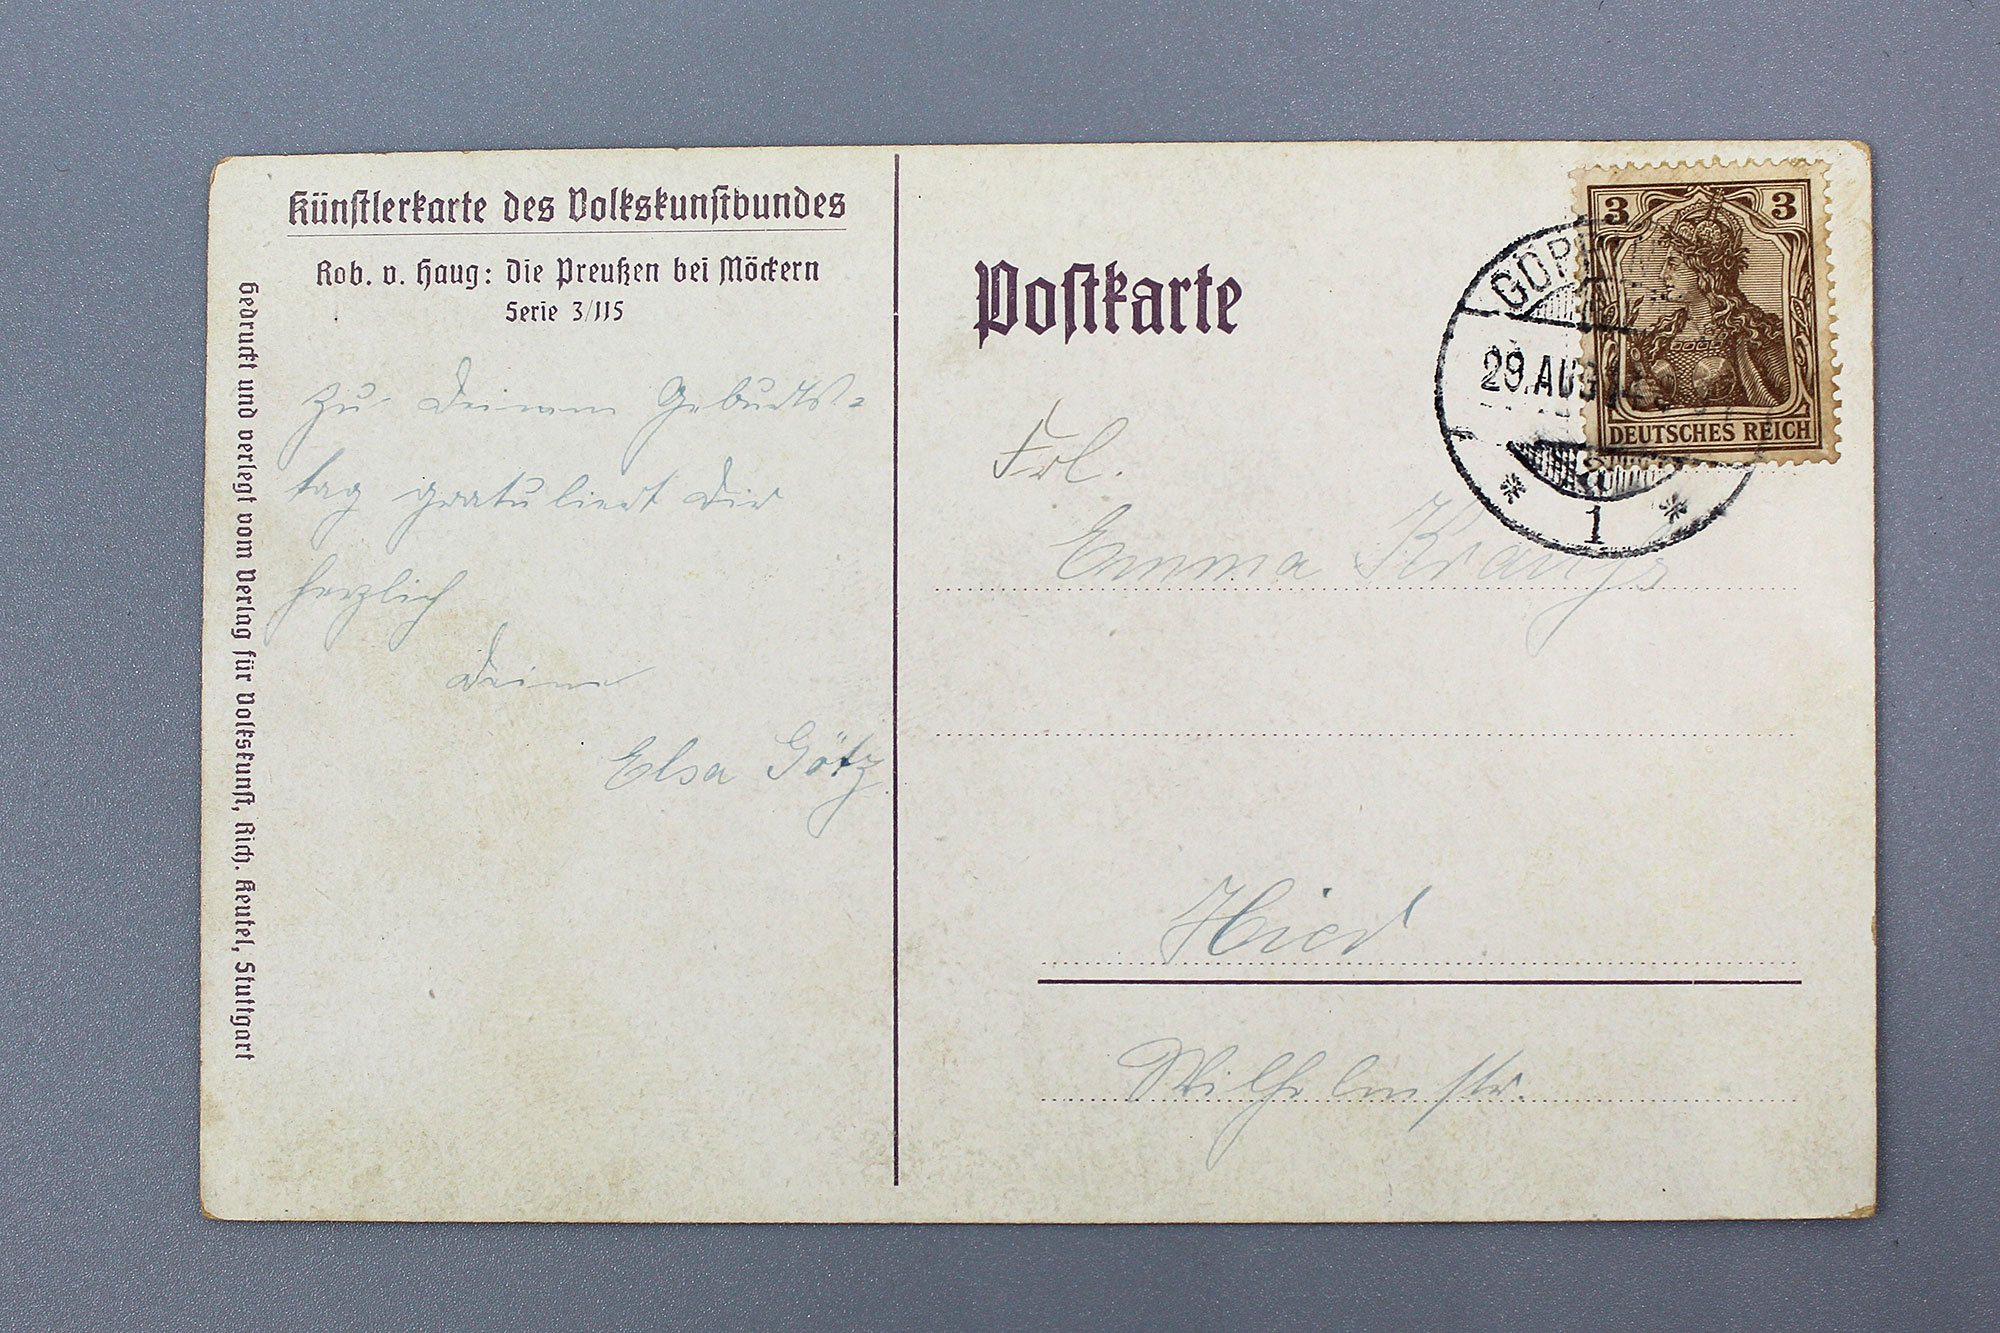 Künstlerkarte des Volkskunstbundes
Rob. v. Haug: Die Preußen bei Möckern
Serie 3/115
Gedruckt und verlegt vom Verlag für Volkskunst, Rich. Keutel, Stuttgart
Zu Deinem Geburts-
tag gratuliert Dir
herzlich
Deine
Elsa Götz
Postkarte
3 3
DEUTSCHES REICH
29. AUG
1
Frl.
Emma
Hier
Wilhelmstr.